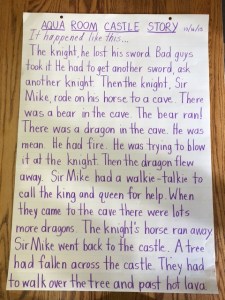 AQUA ROOM CASTLE STORY
It happened like this...
The knight, he lost his sword. Bad guys
took it. He had to get another sword, ask
another knight. Then the knight, Sir
Mike, rode on his horse to a cave. There
was a bear in the cave. The bear ran!
There was a dragon in the cave. He was
mean. He had fire. He was trying to blow
it at the knight. Then the dragon flew
away. Sir Mike had a walkie-talkie to
call the king and queen for help. When
they came to the cave there were lots
more dragons. The knight's horse ran away
Sir Mike went back to the castle. A tree
had fallen across the castle. They had
to walk over the tree and past hot lava